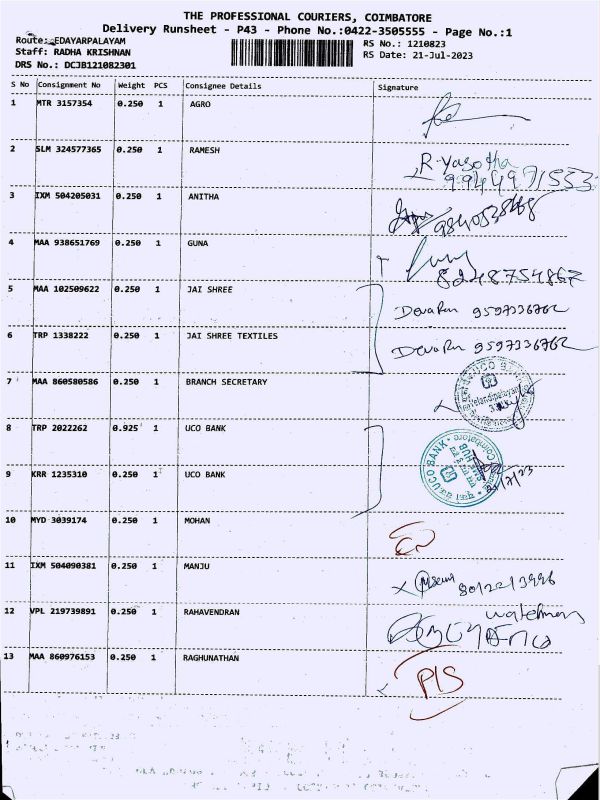 THE PROFESSIONAL COURIERS, COIMBATORE
Delivery Runsheet - P43 - Phone No.:0422-3505555 - Page No.:1
Route: EDAYARPALAYAM
RS No.: 1210823
Staff: RADHA KRISHNAN
RS Date: 21-Jul-2023
DRS No.: DCJB121082301
S No Consignment No Weight PCS Consignee Details Signature
1 MTR 3157354 0.250 1 AGRO
2 SLM 324577365 0.250 1 RAMESH
R-Yasotha
3 IXM 504205031 0.250 1 ANITHA
4 MAA 938651769 0.250 1 GUNA
8248754867
5 MAA 102509622 0.250 1 JAI SHREE
9597336762
6 TRP 1338222 0.250 1 JAI SHREE TEXTILES
9597336762
7 MAA 860580586 0.250 1 BRANCH SECRETARY
8 TRP 2022262 0.925 1 UCO BANK
UCO BANK
Coimbatore
9 KRR 1235310 0.250 1 UCO BANK
10 MYD 3039174 0.250 1 MOHAN
11 IXM 504090381 0.250 1 MANJU
12 VPL 219739891 0.250 1 RAHAVENDRAN
13 MAA 860976153 0.250 1 RAGHUNATHAN
P/S